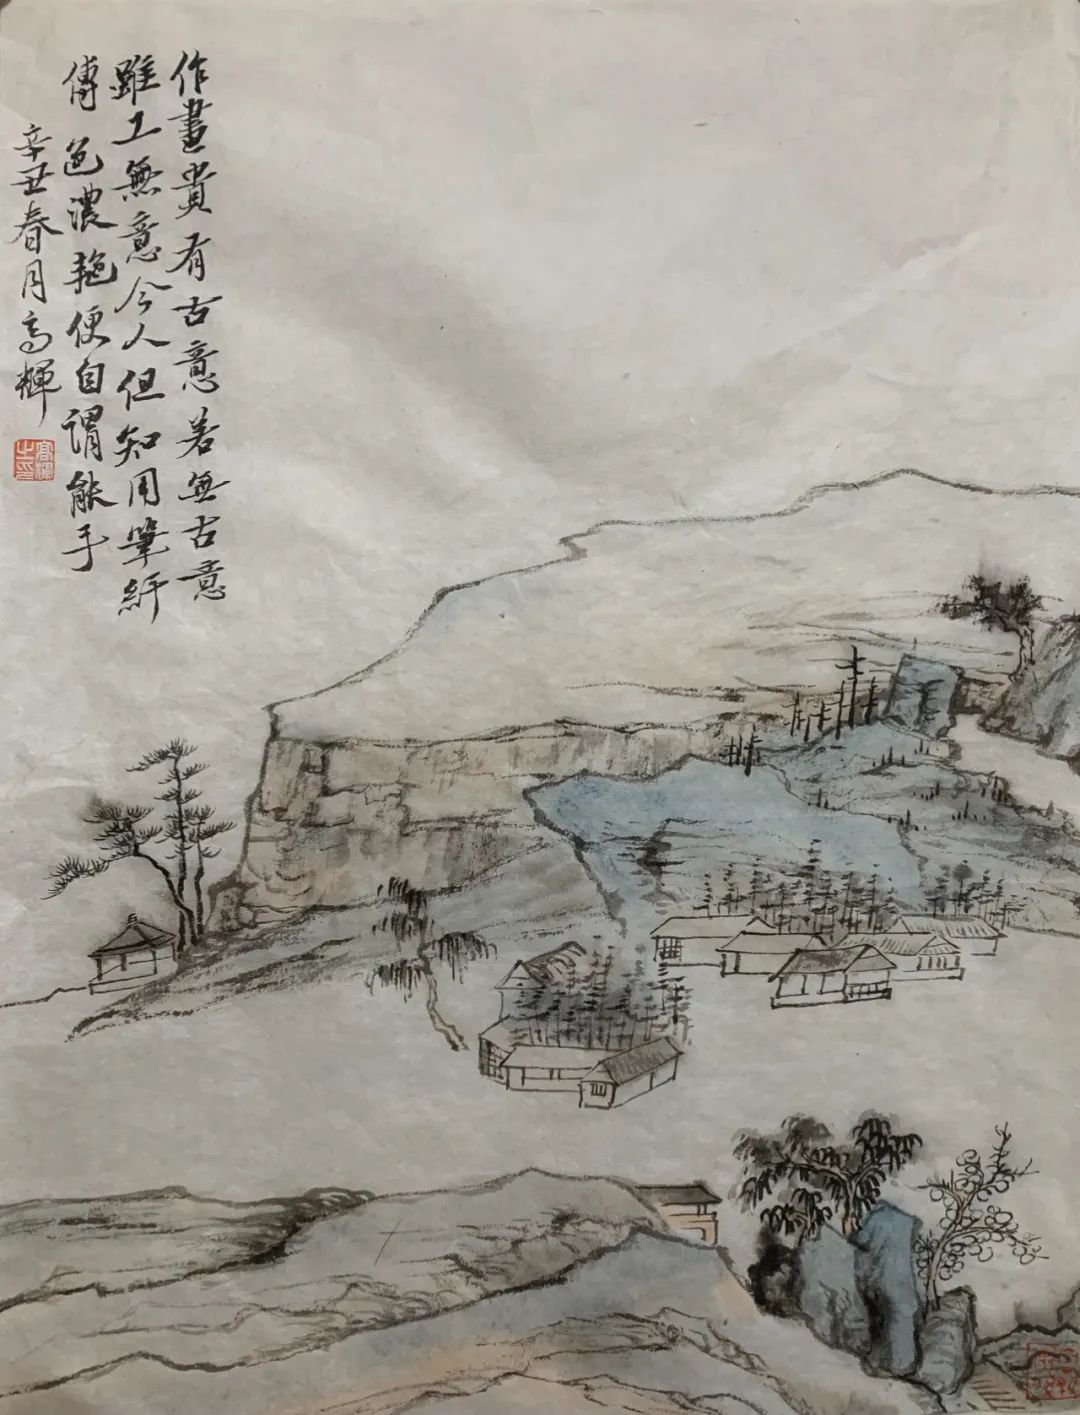 作畫貴有古意若無古意
雖工無意今人但知用筆纖
傅色濃艳便自謂能手
辛丑春月高輝
高輝之印